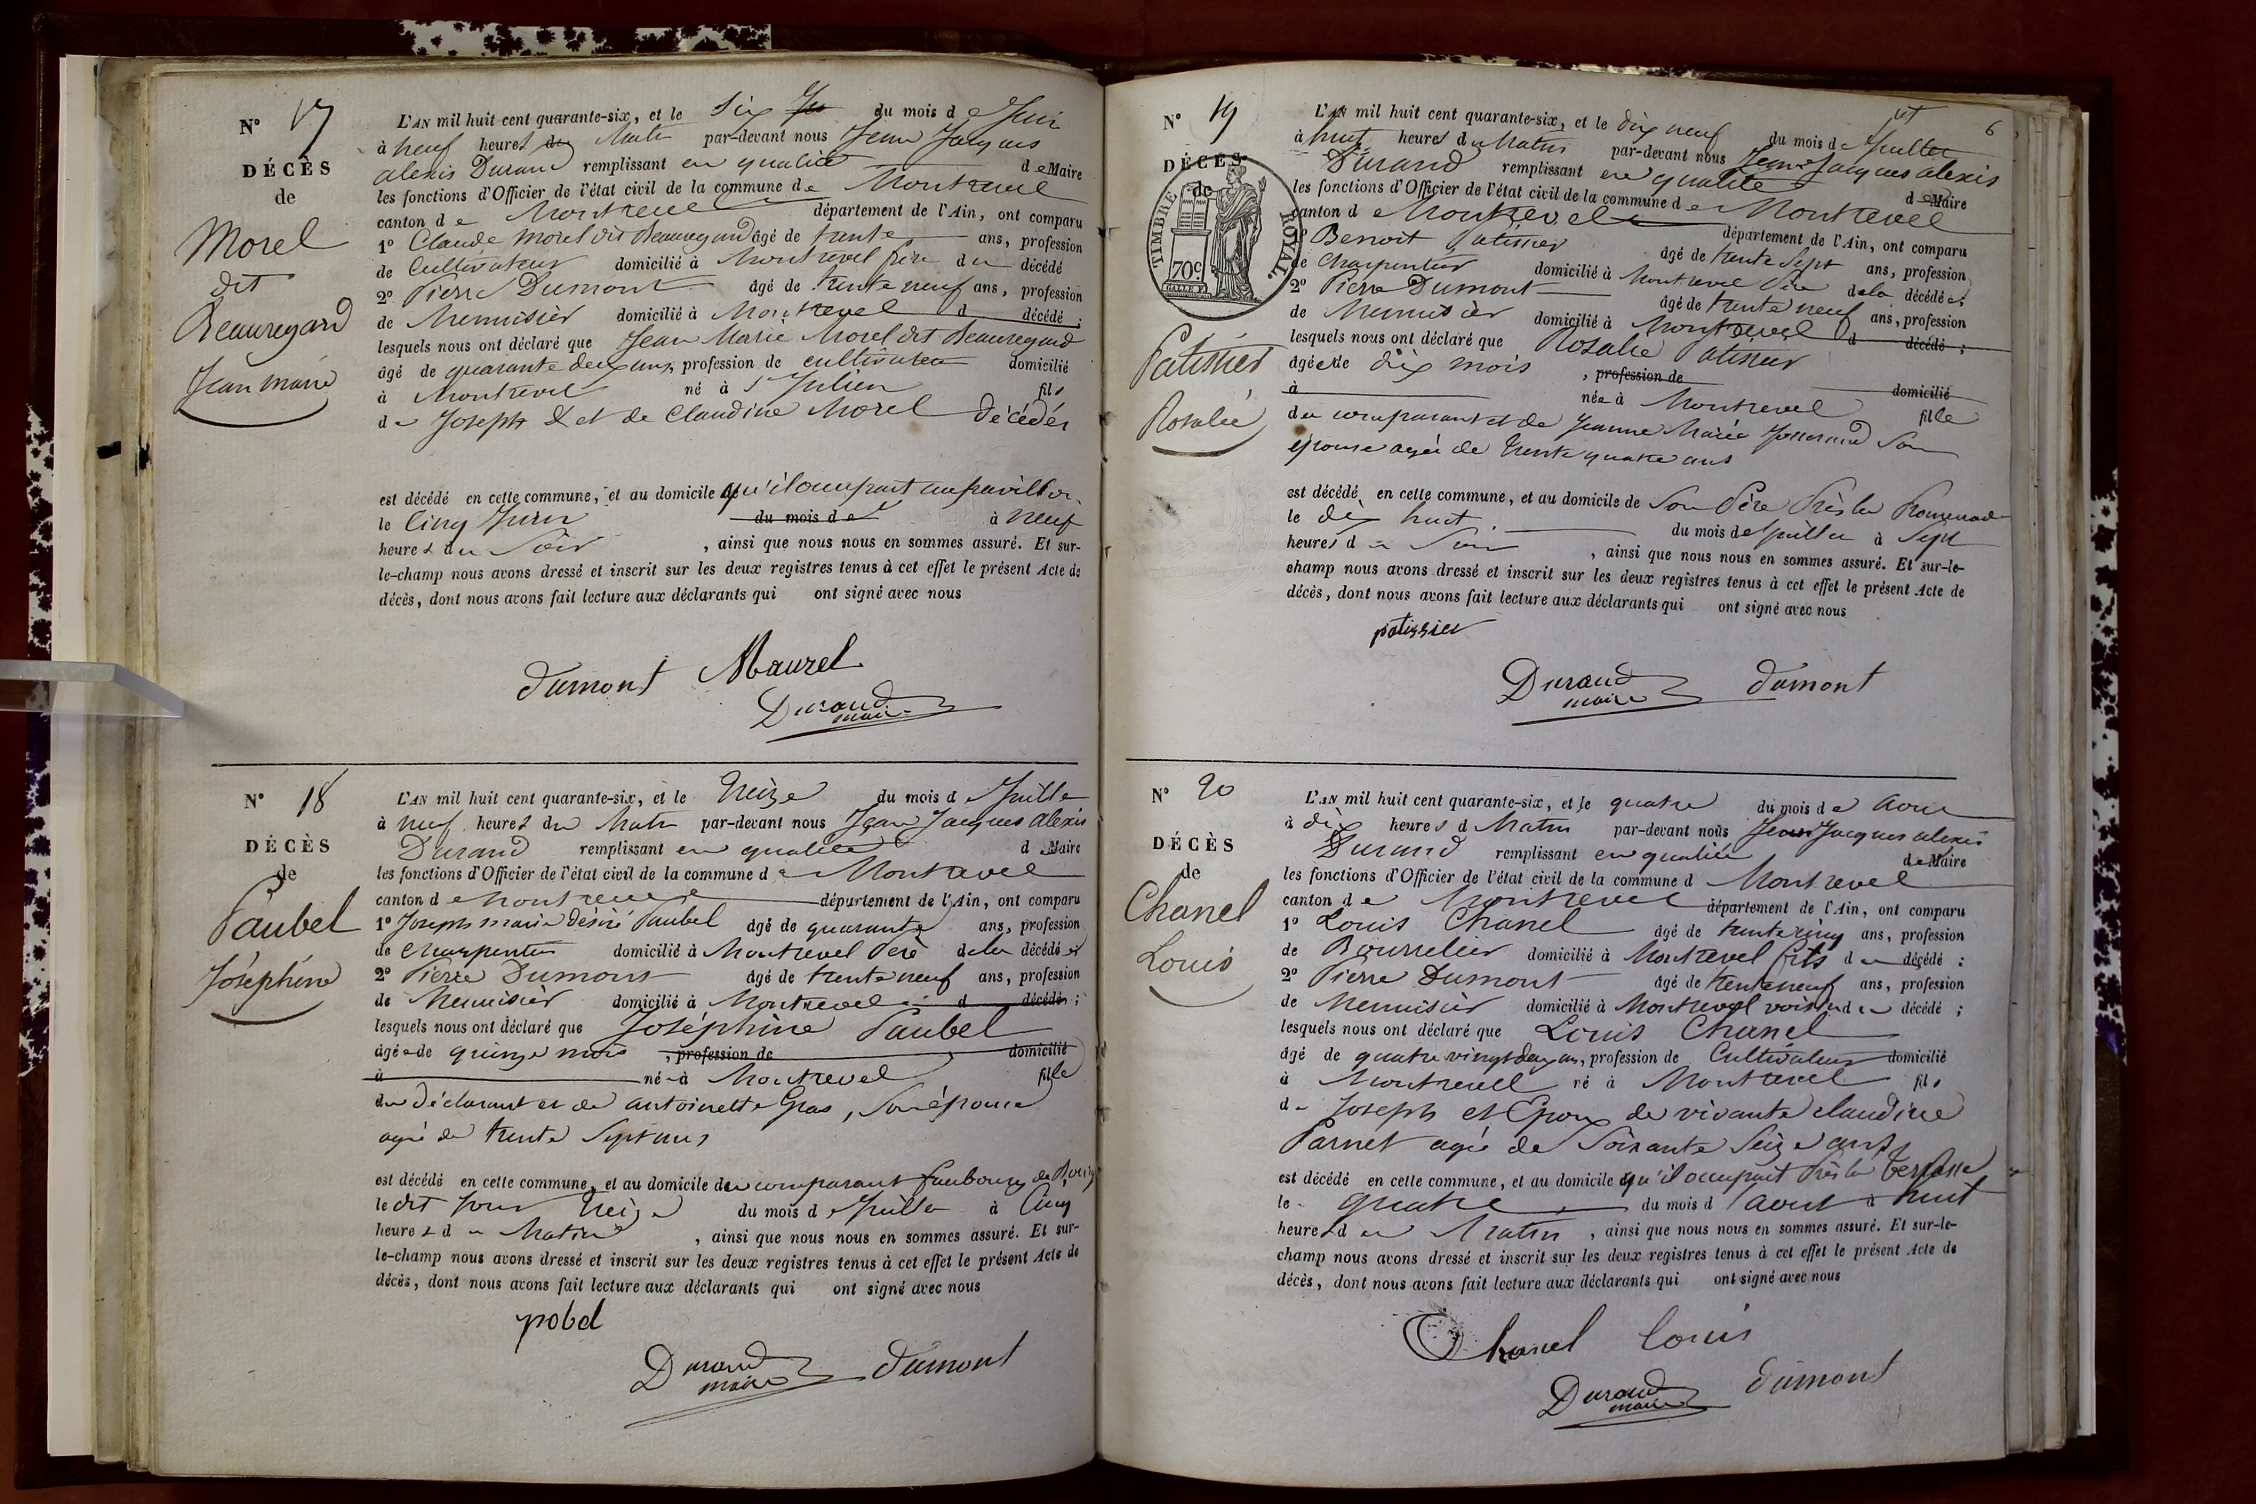 N° 17
DÉCÈS
de
Morel
dit
Beauregard
Jean marie
L'AN mil huit cent quarante-six, et le Six du mois de Juin
à neuf heures du Matin par-devant nous Jean Jacques
alexis Durand remplissant en qualité de Maire
les fonctions d'Officier de l'état civil de la commune de Montrevel
canton de Montrevel département de l'Ain, ont comparu
1° Claude Morel dit Beauregard âgé de trente ans, profession
de Cultivateur domicilié à Montrevel frère du décédé
2° Pierre Dumont âgé de trente neuf ans, profession
de Menuisier domicilié à Montrevel d décédé ;
lesquels nous ont déclaré que Jean Marie Morel dit Beauregard
âgé de quarante deux ans, profession de cultivateur domicilié
à Montrevel né à St Julien fils
de Joseph & et de Claudine Morel décédés
est décédé en cette commune, et au domicile qu'il occupait au pavillon
le Cinq Juin du mois de à neuf
heures du Soir , ainsi que nous nous en sommes assuré. Et sur-
le-champ nous avons dressé et inscrit sur les deux registres tenus à cet effet le présent Acte de
décès, dont nous avons fait lecture aux déclarants qui ont signé avec nous
dumont Maurel
Durand
maire
N° 18
DÉCÈS
de
Paubel
Joséphine
L'AN mil huit cent quarante-six, et le Treize du mois de Juillet
à neuf heures du Matin par-devant nous Jean Jacques alexis
Durand remplissant en qualité de Maire
les fonctions d'Officier de l'état civil de la commune de Montrevel
canton de Montrevel département de l'Ain, ont comparu
1° Joseph marie désiré Paubel âgé de quarante ans, profession
de Charpentier domicilié à Montrevel Père de la décédée
2° Pierre Dumont âgé de trente neuf ans, profession
de Menuisier domicilié à Montrevel d décédé ;
lesquels nous ont déclaré que Joséphine Paubel
âgée de quinze mois , profession de domicilié
à née à Montrevel fille
du déclarant et de antoinette Gras, Son épouse
agée de trente Sept ans
est décédé en cette commune, et au domicile du comparant faubourg de Bourg
le dit jour Treize du mois de Juillet à Cinq
heures du Matin , ainsi que nous nous en sommes assuré. Et sur-
le-champ nous avons dressé et inscrit sur les deux registres tenus à cet effet le présent Acte de
décès, dont nous avons fait lecture aux déclarants qui ont signé avec nous
pobel
Durand dumont
maire
6
N° 19
DÉCÈS
de
TIMBRE ROYAL.
70c
Patissier
Rosalie
L'AN mil huit cent quarante-six, et le dix neuf du mois de Juillet
à huit heures du Matin par-devant nous Jean Jacques alexis
Durand remplissant en qualité de Maire
les fonctions d'Officier de l'état civil de la commune de Montrevel
canton de Montrevel département de l'Ain, ont comparu
1° Benoit Patissier âgé de trente Sept ans, profession
de Charpentier domicilié à Montrevel Père de la décédée ;
2° Pierre Dumont âgé de trente neuf ans, profession
de Menuisier domicilié à Montrevel d décédé ;
lesquels nous ont déclaré que Rosalie Patissier
âgée de dix mois , profession de domicilié
à née à Montrevel fille
du comparant et de Jeanne Marie Josserand Son
épouse agée de Trente quatre ans
est décédé en cette commune, et au domicile de Son Père Près la Promenade
le dix huit du mois de Juillet à Sept
heures du Soir , ainsi que nous nous en sommes assuré. Et sur-le-
champ nous avons dressé et inscrit sur les deux registres tenus à cet effet le présent Acte de
décès, dont nous avons fait lecture aux déclarants qui ont signé avec nous
patissier
Durand dumont
maire
N° 20
DÉCÈS
de
Chanel
Louis
L'AN mil huit cent quarante-six, et le quatre du mois de Aout
à dix heures d Matin par-devant nous Jean Jacques alexis
Durand remplissant en qualité de Maire
les fonctions d'Officier de l'état civil de la commune d Montrevel
canton de Montrevel département de l'Ain, ont comparu
1° Louis Chanel âgé de trente cinq ans, profession
de Bourrelier domicilié à Montrevel fils du décédé :
2° Pierre Dumont âgé de trente neuf ans, profession
de Menuisier domicilié à Montrevel voisin du décédé ;
lesquels nous ont déclaré que Louis Chanel
âgé de quatre vingt deux ans, profession de Cultivateur domicilié
à Montrevel né à Montrevel fils
de Joseph et Epoux de vivante claudine
Parnet agée de Soixante Seize ans
est décédé en cette commune, et au domicile qu'il occupait Près la terrasse
le quatre du mois d aout à huit
heures du Matin , ainsi que nous nous en sommes assuré. Et sur-le-
champ nous avons dressé et inscrit sur les deux registres tenus à cet effet le présent Acte de
décès, dont nous avons fait lecture aux déclarants qui ont signé avec nous
Chanel louis
Durand dumont
maire